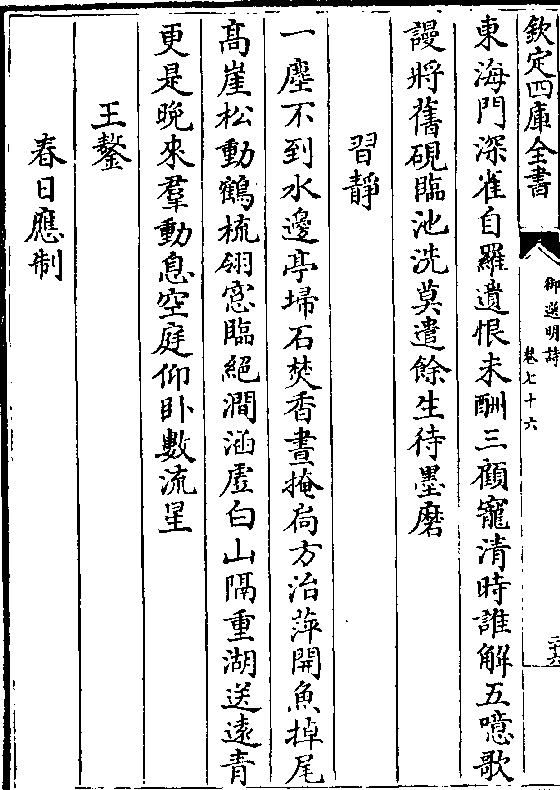 欽定四庫全書
御選明詩
卷七十六
二十六
東海門深雀自羅遺恨未酬三顧寵清時誰解五噫歌
謾將舊硯臨池洗莫遣餘生待墨磨
習靜
一塵不到水邊亭埽石焚香晝掩扃方沼萍開魚掉尾
髙崖松動鶴梳翎窓臨絕澗涵虛白山隔重湖送遠青
更是晚來羣動息空庭仰卧數流星
王鏊
春日應制